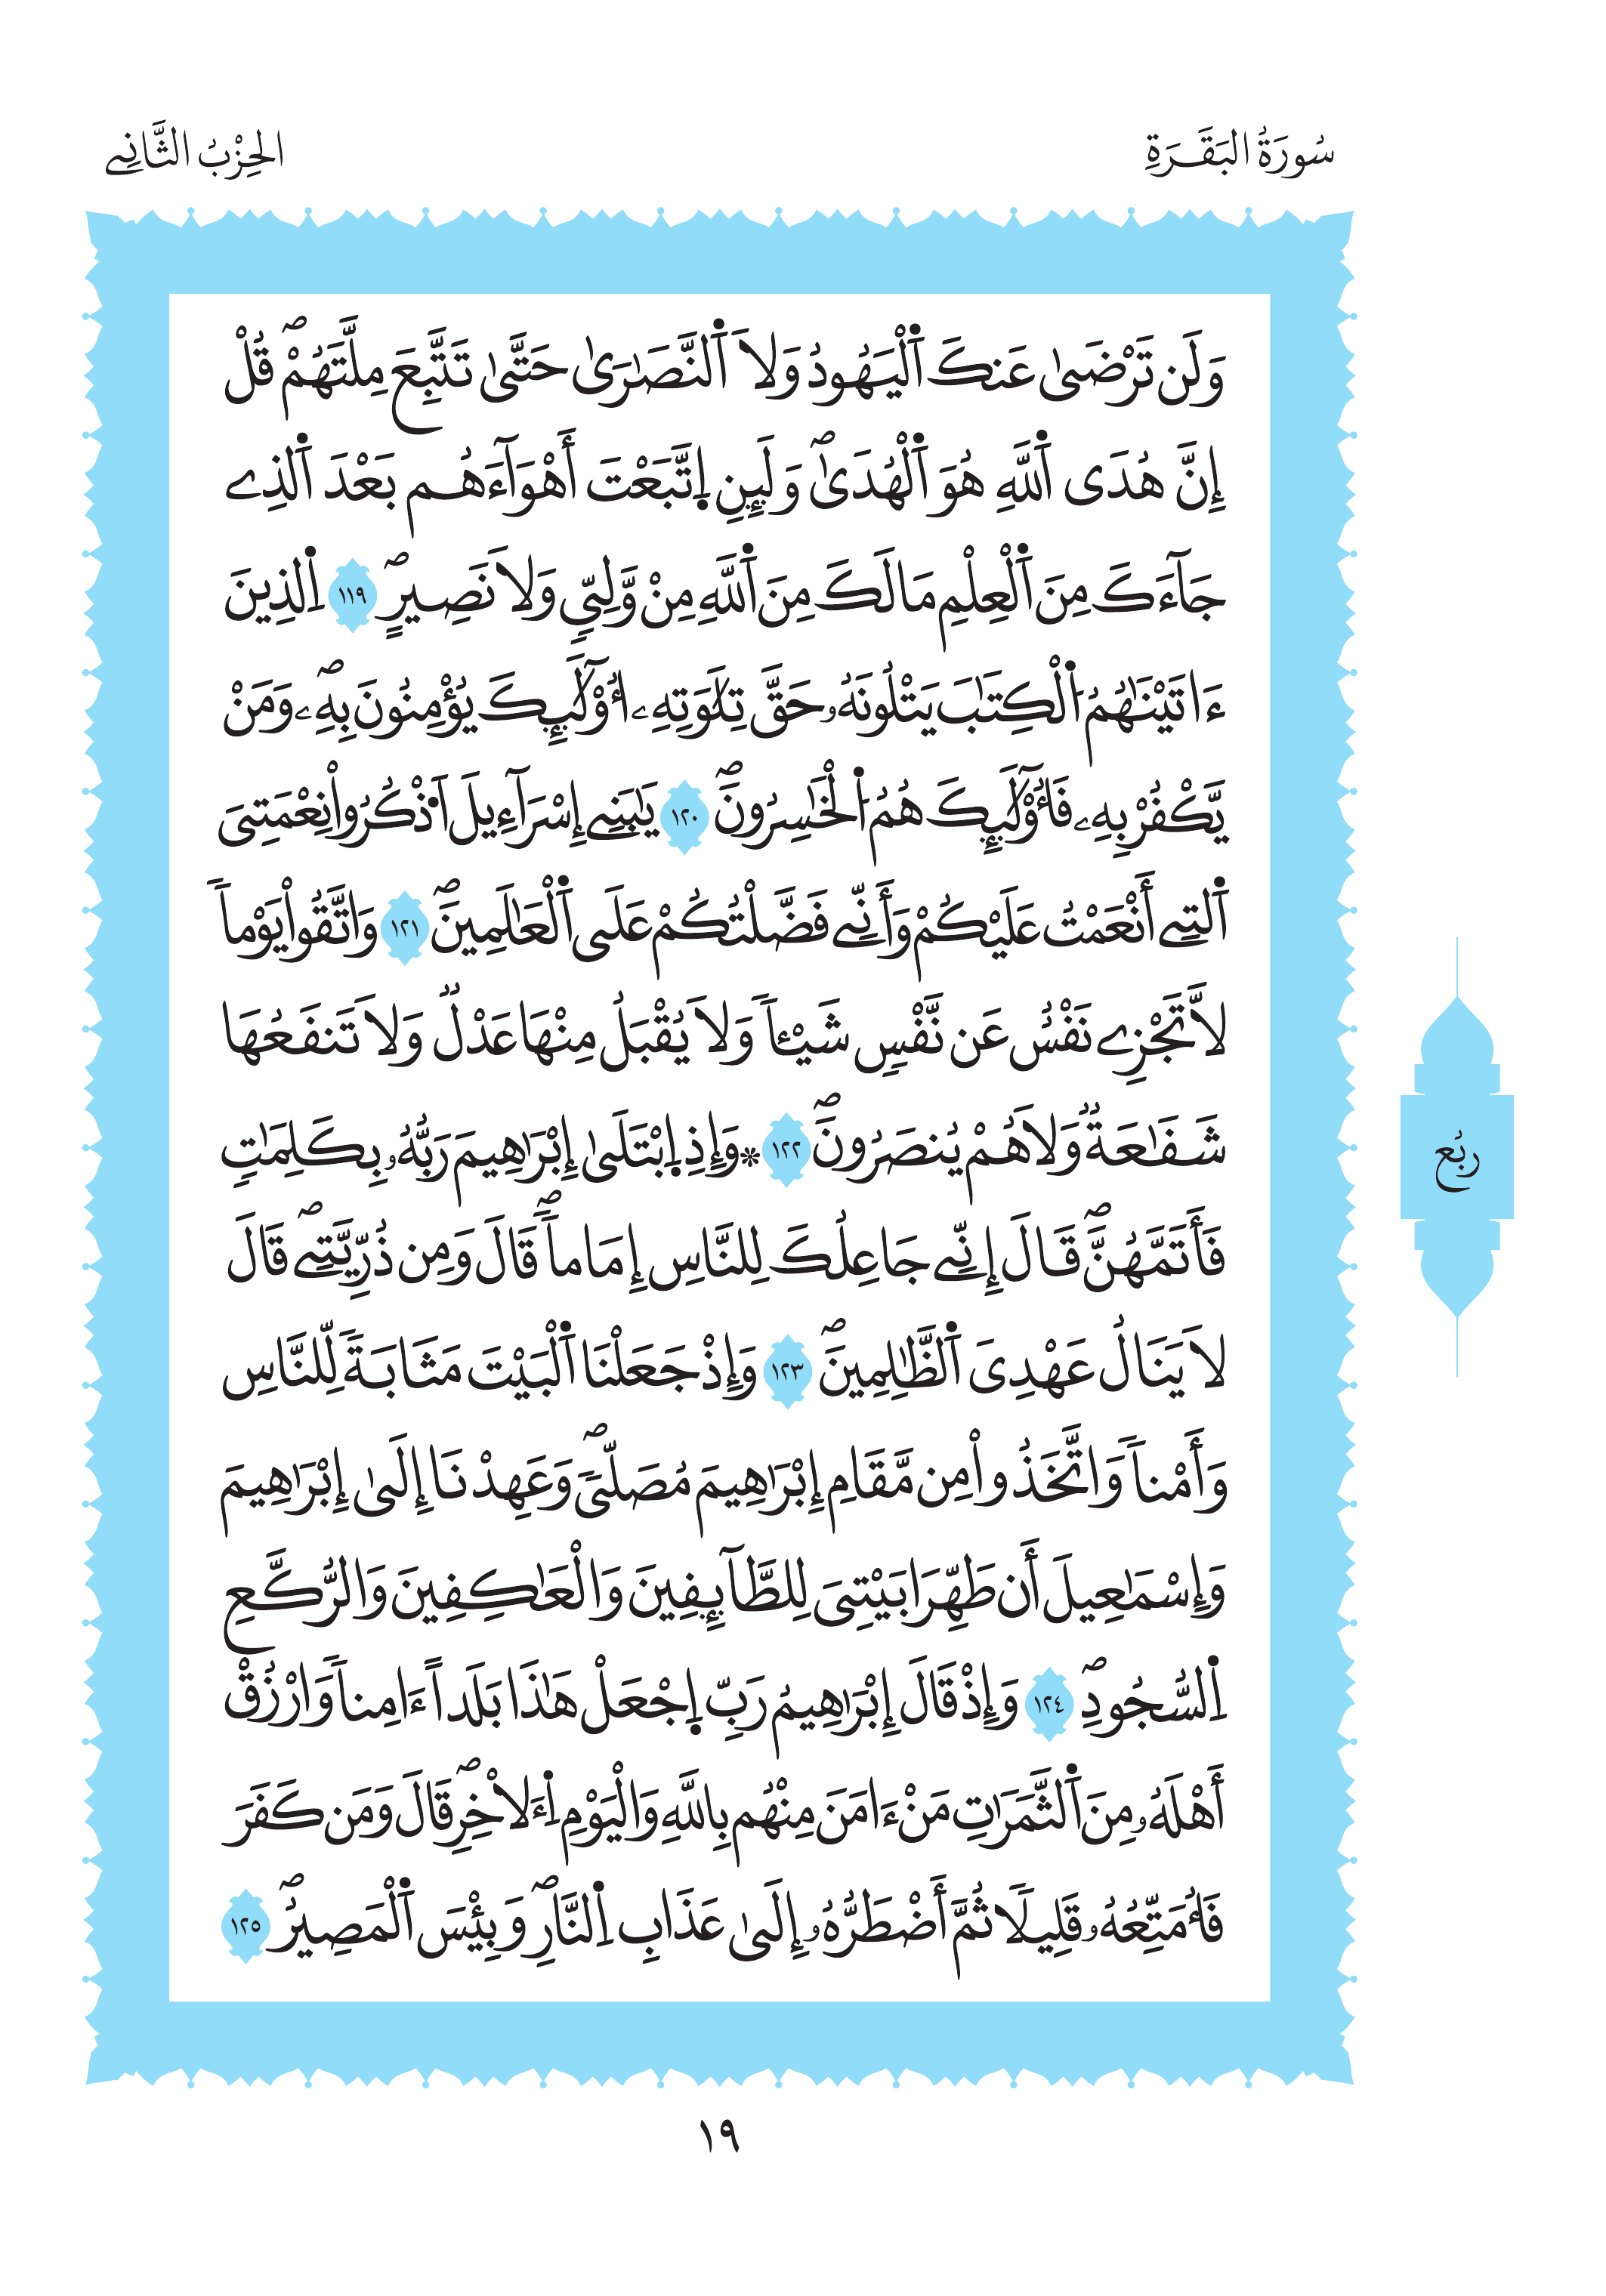 سُورَةُ البَقَرَةِ
الحِزْبُ الثَّانِے
وَلَن تَرْضَىٰ عَنكَ اَ۬لْيَهُودُ وَلَا اَ۬لنَّصَٰرَىٰ حَتَّىٰ تَتَّبِعَ مِلَّتَهُمْۖ قُلْ
إِنَّ هُدَى اَ۬للَّهِ هُوَ اَ۬لْهُدَىٰۖ وَلَئِنِ اِ۪تَّبَعْتَ أَهْوَآءَهُم بَعْدَ اَ۬لذِے
جَآءَكَ مِنَ اَ۬لْعِلْمِ مَا لَكَ مِنَ اَ۬للَّهِ مِنْ وَّلِيّٖ وَلَا نَصِيرٍۖ ١١٩ اِ۬لذِينَ
ءَاتَيْنَٰهُمُ اُ۬لْكِتَٰبَ يَتْلُونَهُۥ حَقَّ تِلَٰوَتِهِۦٓ أُوْلَٰٓئِكَ يُؤْمِنُونَ بِهِۦۖ وَمَنْ
يَّكْفُرْ بِهِۦ فَأُوْلَٰٓئِكَ هُمُ اُ۬لْخَٰسِرُونَۖ ١٢٠ يَٰبَنِےٓ إِسْرَآءِيلَ اَ۟ذْكُرُواْ نِعْمَتِيَ
اَ۬لتِےٓ أَنْعَمْتُ عَلَيْكُمْ وَأَنِّے فَضَّلْتُكُمْ عَلَى اَ۬لْعَٰلَمِينَۖ ١٢١ وَاتَّقُواْ يَوْماٗ
لَّا تَجْزِے نَفْسٌ عَن نَّفْسٖ شَيْـٔاٗ وَلَا يُقْبَلُ مِنْهَا عَدْلٞ وَلَا تَنفَعُهَا
شَفَٰعَةٞ وَلَا هُمْ يُنصَرُونَۖ ١٢٢ ۞وَإِذِ اِ۪بْتَلَىٰٓ إِبْرَٰهِيمَ رَبُّهُۥ بِكَلِمَٰتٖ
فَأَتَمَّهُنَّۖ قَالَ إِنِّے جَاعِلُكَ لِلنَّاسِ إِمَاماٗۖ قَالَ وَمِن ذُرِّيَّتِےۖ قَالَ
لَا يَنَالُ عَهْدِى اَ۬لظَّٰلِمِينَۖ ١٢٣ وَإِذْ جَعَلْنَا اَ۬لْبَيْتَ مَثَابَةٗ لِّلنَّاسِ
وَأَمْناٗ وَاتَّخَذُواْ مِن مَّقَامِ إِبْرَٰهِيمَ مُصَلّٗىۖ وَعَهِدْنَآ إِلَىٰٓ إِبْرَٰهِيمَ
وَإِسْمَٰعِيلَ أَن طَهِّرَا بَيْتِيَ لِلطَّآئِفِينَ وَالْعَٰكِفِينَ وَالرُّكَّعِ
اِ۬لسُّجُودِۖ ١٢٤ وَإِذْ قَالَ إِبْرَٰهِيمُ رَبِّ اِ۪جْعَلْ هَٰذَا بَلَداً ءَامِناٗ وَارْزُقْ
أَهْلَهُۥ مِنَ اَ۬لثَّمَرَٰتِ مَنْ ءَامَنَ مِنْهُم بِاللَّهِ وَالْيَوْمِ اِ۬لَاخِرِۖ قَالَ وَمَن كَفَرَ
فَأُمَتِّعُهُۥ قَلِيلٗا ثُمَّ أَضْطَرُّهُۥٓ إِلَىٰ عَذَابِ اِ۬لنّ۪ارِۖ وَبِئْسَ اَ۬لْمَصِيرُۖ ١٢٥
ربُع
١٩